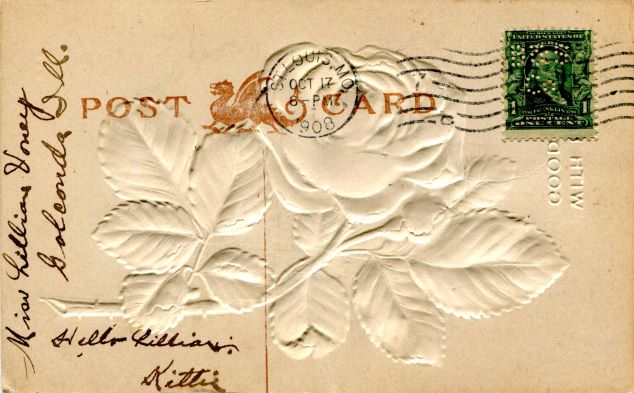 POST CARD
ST. LOUIS, MO.
OCT 17
8-PM
1908
UNITED STATES OF
FRANKLIN
POSTAGE
1 ONE CENT 1
WITH
GOOD
Miss Lillian
Golconda Ill.
Hello Lillian.
Kittie